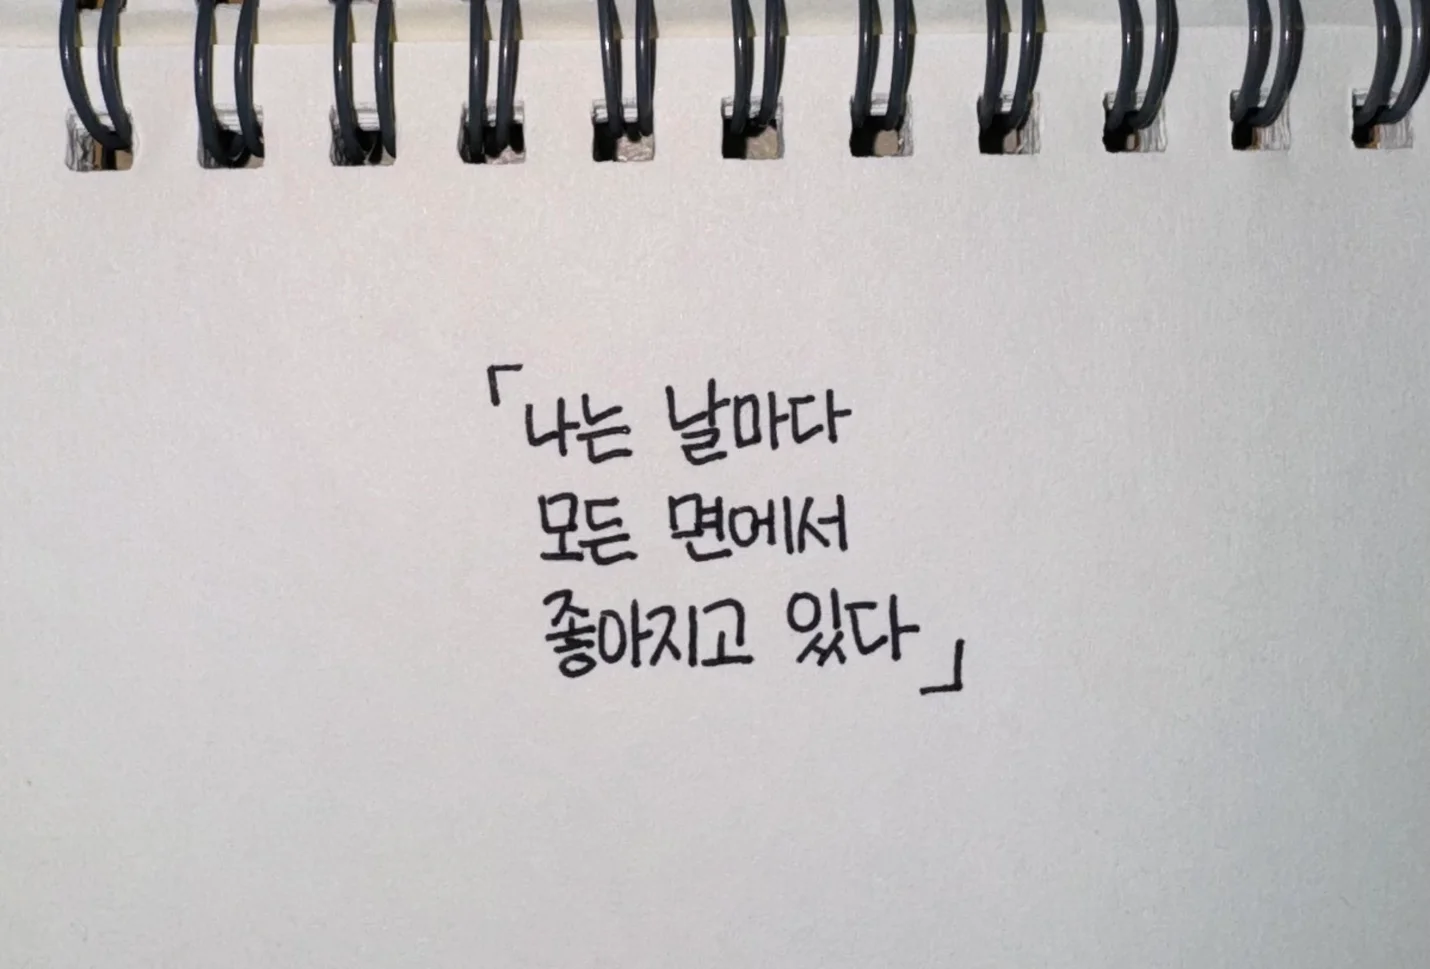 「나는 날마다
모든 면에서
좋아지고 있다」